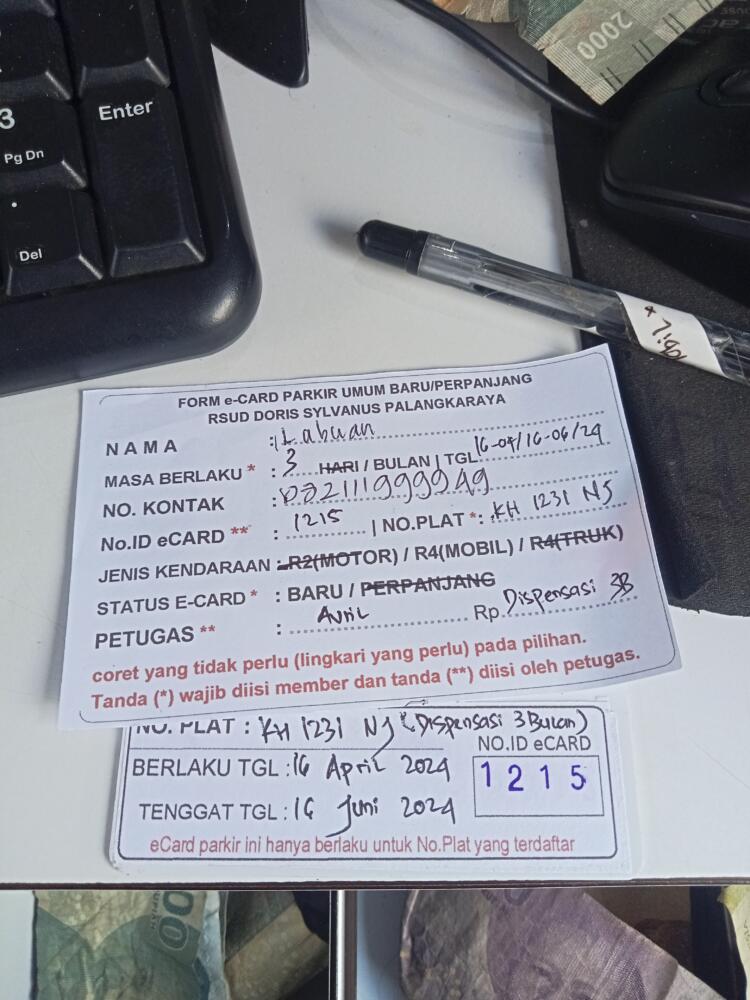 3
Pg Dn
Enter
.
Del
2000
FORM e-CARD PARKIR UMUM BARU/PERPANJANG
RSUD DORIS SYLVANUS PALANGKARAYA
NAMA : Labuan
MASA BERLAKU * : 3 HARI / BULAN | TGL 16-04/16-06/24
NO. KONTAK : 082111999949
No.ID eCARD ** : 1215 | NO.PLAT *: KH 1231 NJ
JENIS KENDARAAN : R2(MOTOR) / R4(MOBIL) / R4(TRUK)
STATUS E-CARD * : BARU / PERPANJANG
PETUGAS ** : Avril Rp. Dispensasi 3B
coret yang tidak perlu (lingkari yang perlu) pada pilihan.
Tanda (*) wajib diisi member dan tanda (**) diisi oleh petugas.
NO. PLAT : KH 1231 NJ (Dispensasi 3 Bulan)
NO.ID eCARD
BERLAKU TGL : 16 April 2024
1215
TENGGAT TGL : 16 Juni 2024
eCard parkir ini hanya berlaku untuk No.Plat yang terdaftar